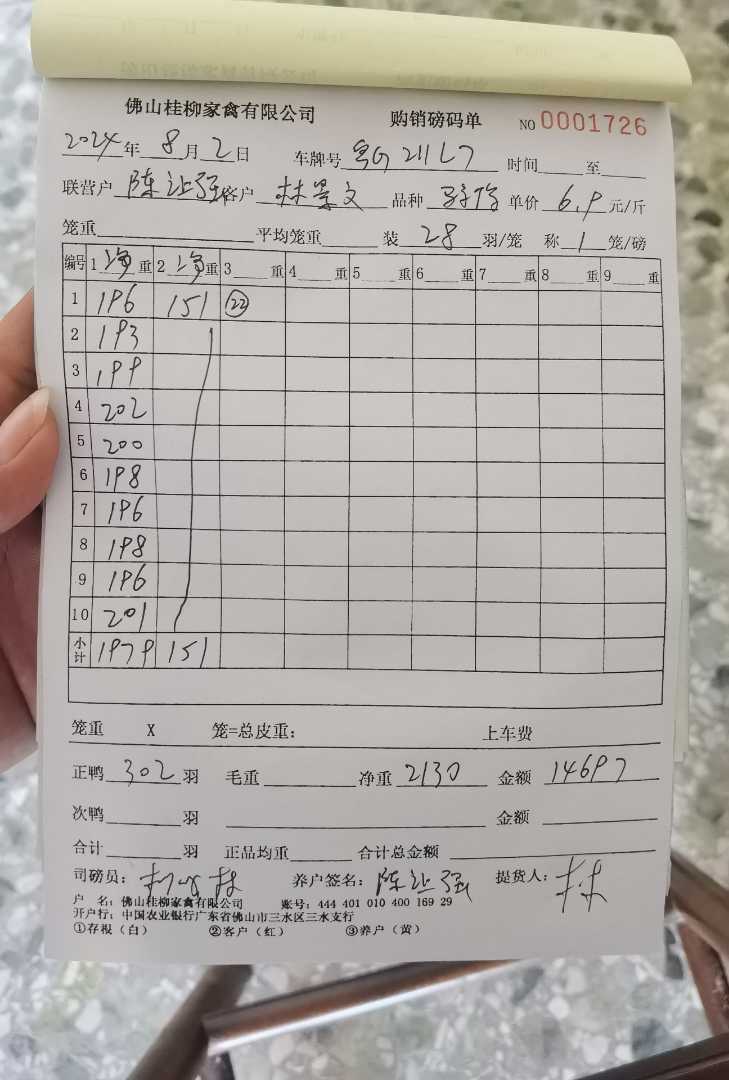 佛山桂柳家禽有限公司 购销磅码单 NO 0001726
2024年 8月 2日 车牌号 时间 至
联营户 陈 强 客户 林景文 品种 单价 6.9 元/斤
笼重 平均笼重 装 28 羽/笼 称 1 笼/磅
编号 1 净 重 2 净 重 3 重 4 重 5 重 6 重 7 重 8 重 9 重
1 196 151 22
2 193
3 199
4 202
5 200
6 198
7 196
8 198
9 196
10 201
小计 1979 151
笼重 X 笼=总皮重: 上车费
正鸭 302 羽 毛重 净重 2130 金额 14697
次鸭 羽 金额
合计 羽 正品均重 合计总金额
司磅员: 养户签名: 陈 强 提货人: 林
户 名: 佛山桂柳家禽有限公司 账号: 444 401 010 400 169 29
开户行: 中国农业银行广东省佛山市三水区三水支行
①存根(白) ②客户(红) ③养户(黄)